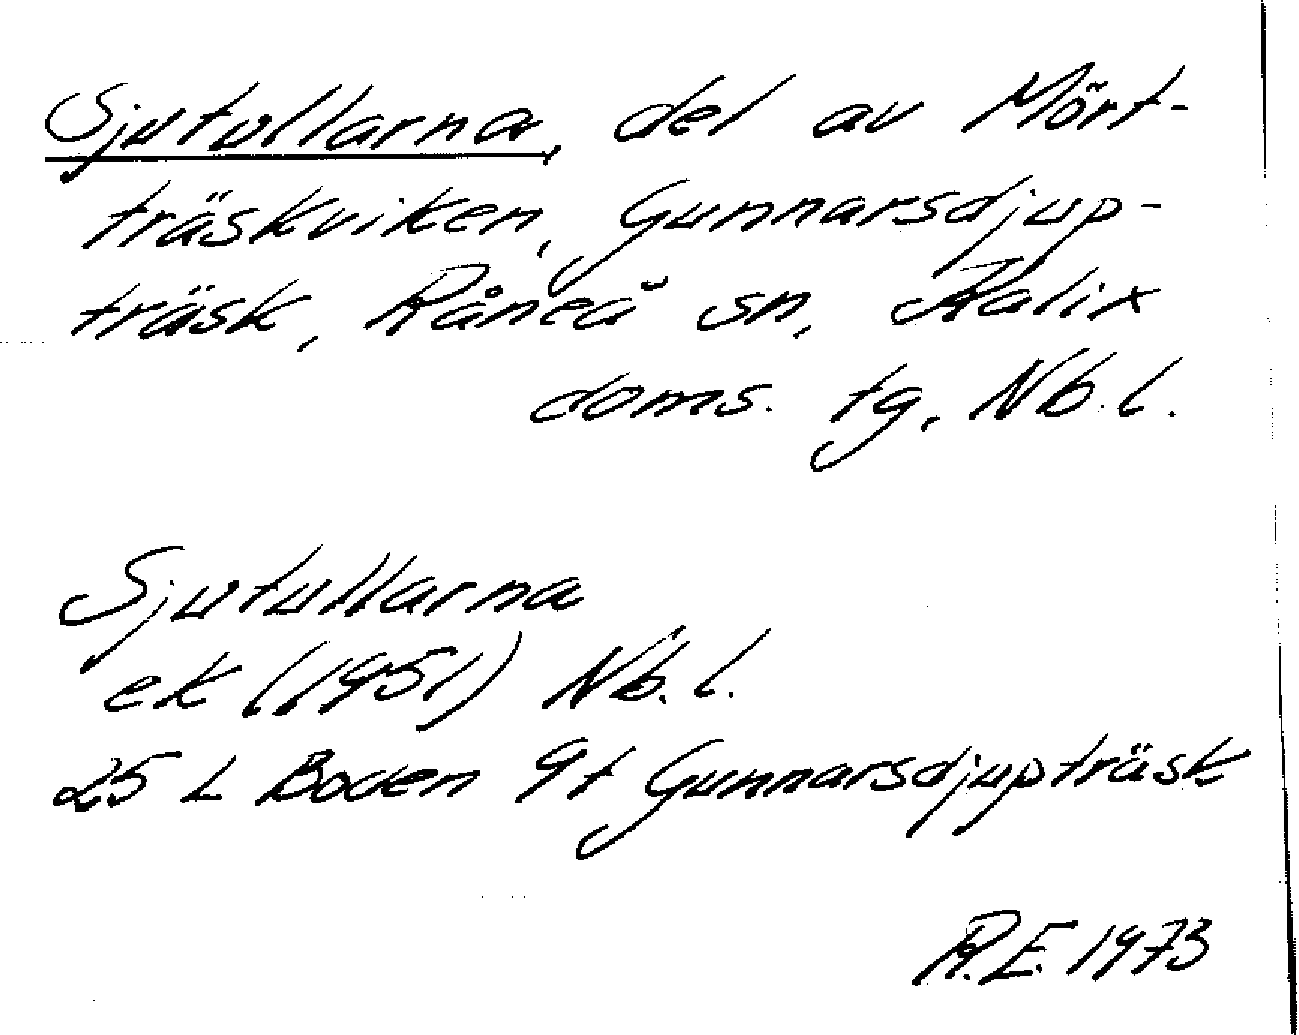 Sjutullarna, del av Mört-
träskviken, Gunnarsdjup-
träsk, Råneå sn, Kalix
doms. tg, Nb. l.
Sjutullarna
ek (1951) Nb. l.
25 L Boden 9f Gunnarsdjupträsk
R.E. 1973